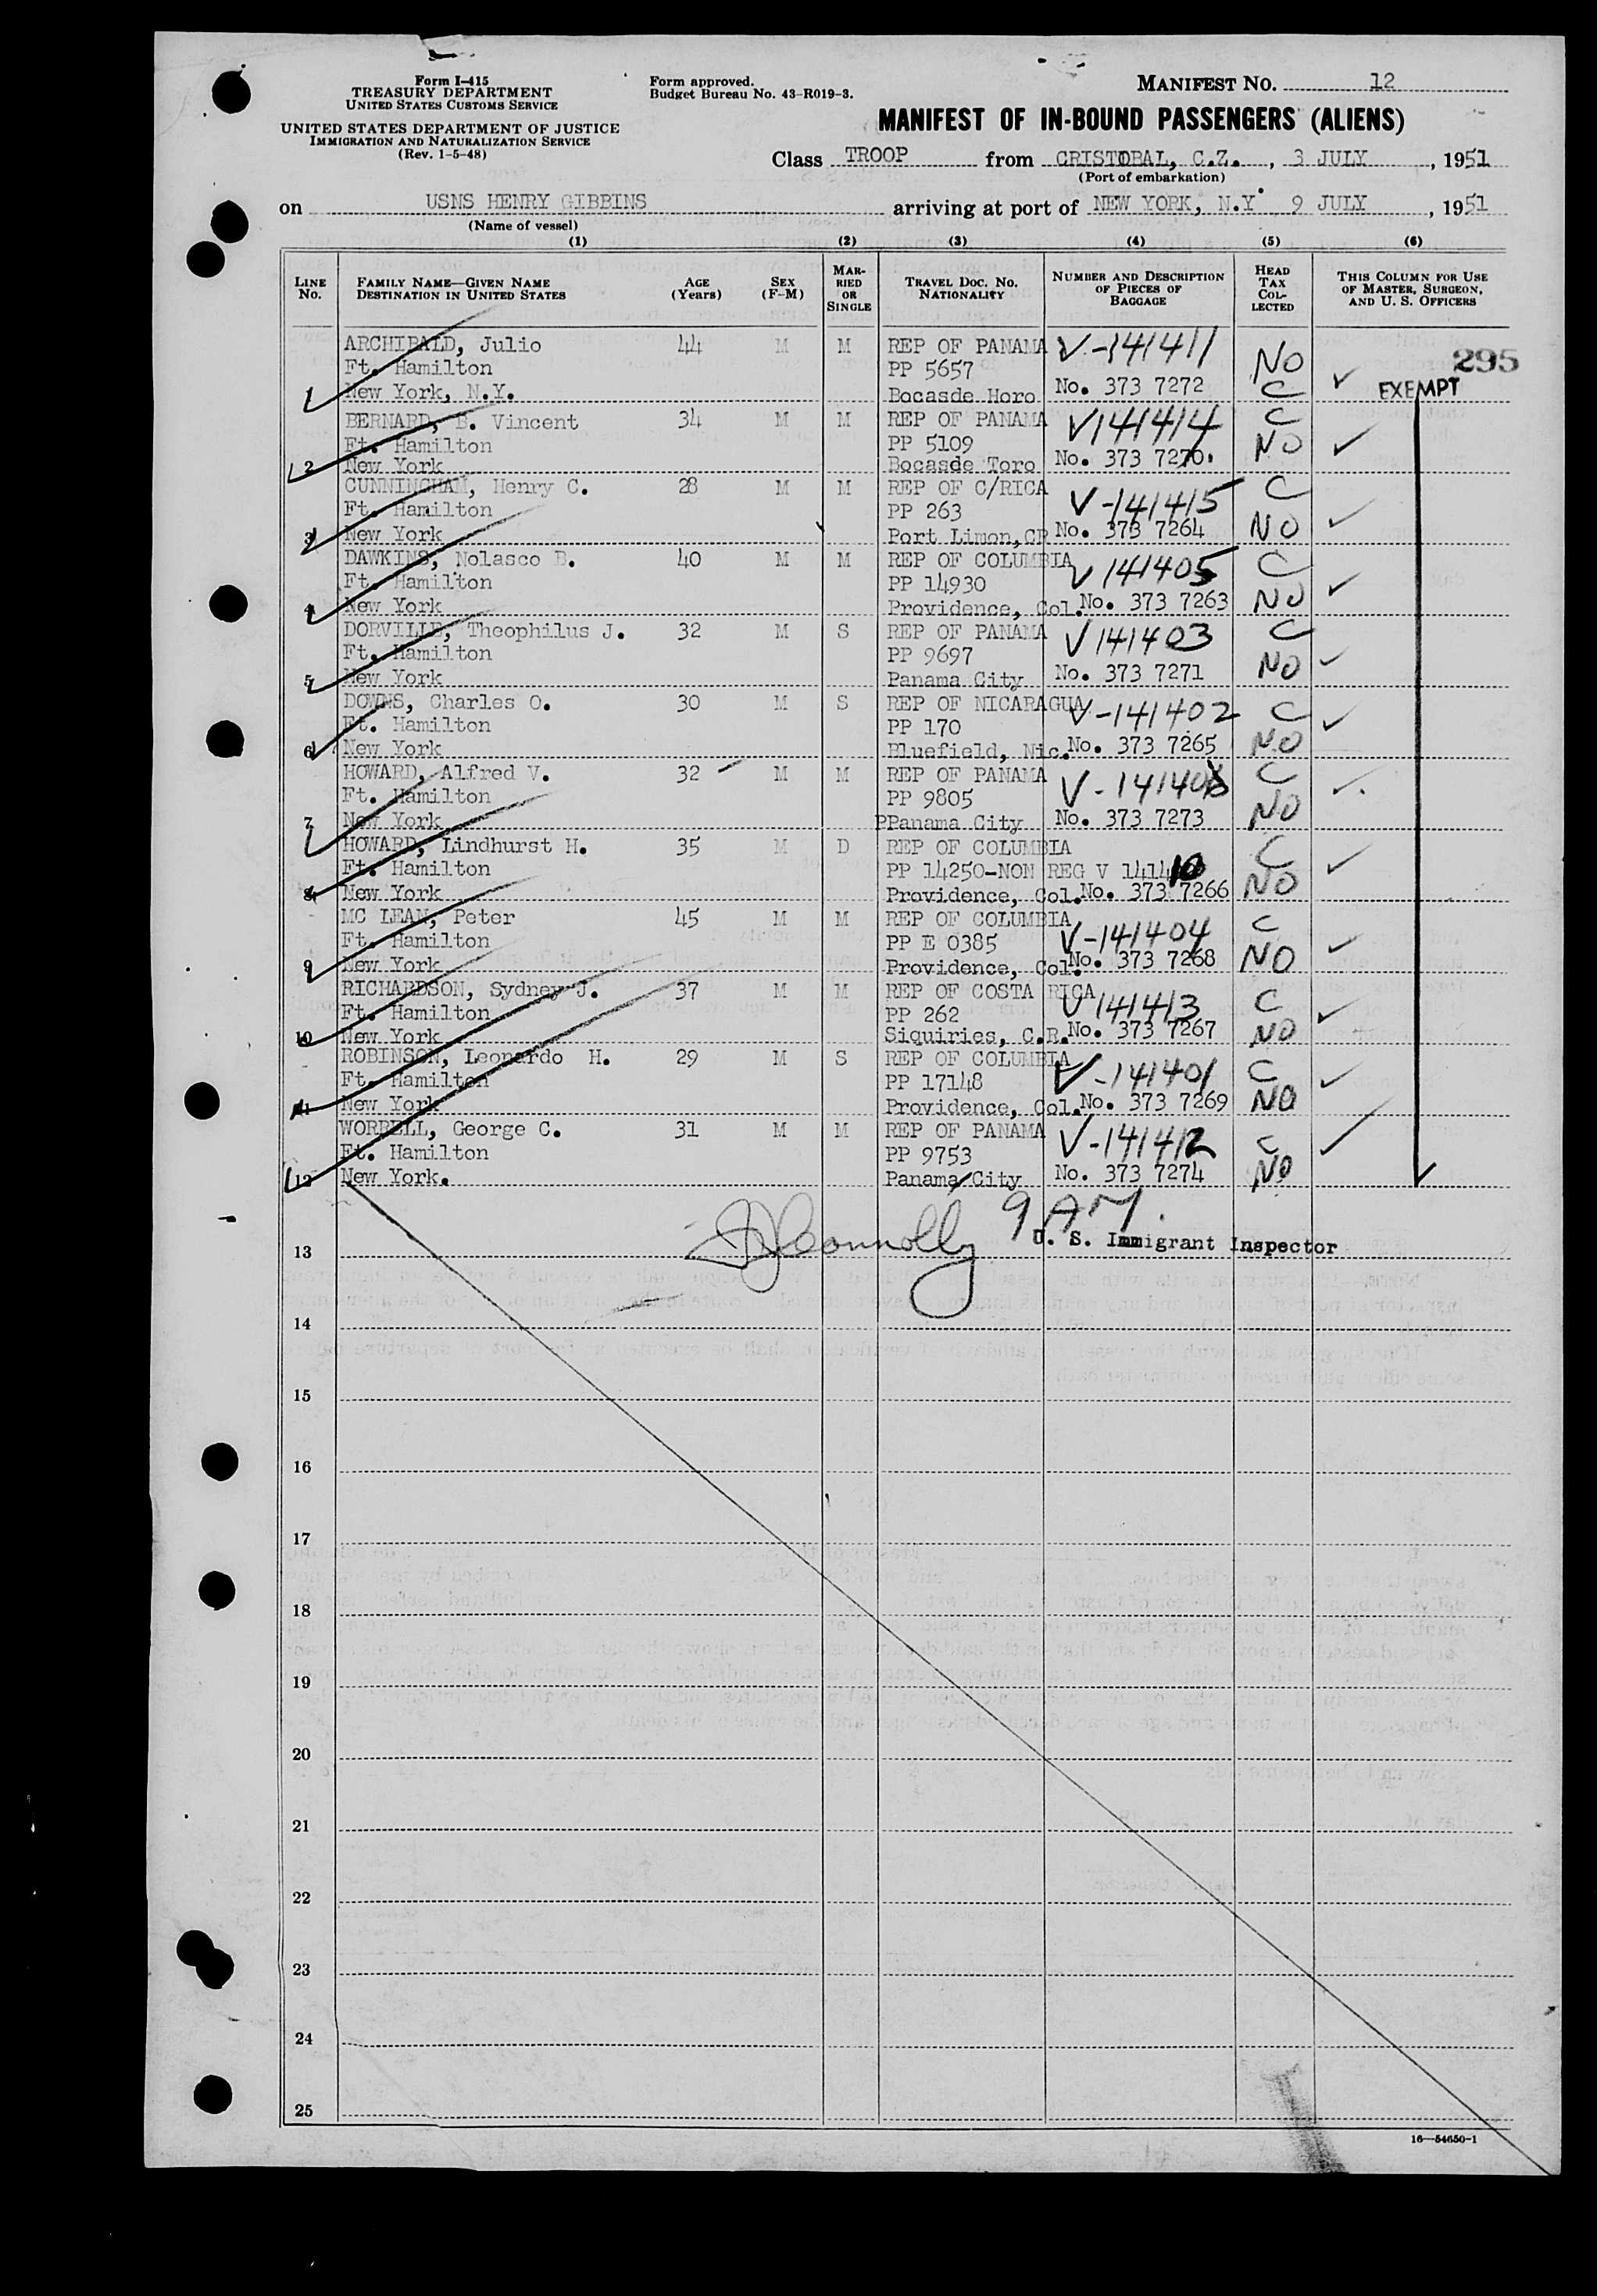 Form I-415
TREASURY DEPARTMENT
UNITED STATES CUSTOMS SERVICE
UNITED STATES DEPARTMENT OF JUSTICE
IMMIGRATION AND NATURALIZATION SERVICE
(Rev. 1-5-48)
Form approved.
Budget Bureau No. 43-R019-3.
MANIFEST NO. 12
MANIFEST OF IN-BOUND PASSENGERS (ALIENS)
Class TROOP from CRISTOBAL, C.Z., 3 JULY, 1951
(Port of embarkation)
on USNS HENRY GIBBINS arriving at port of NEW YORK, N.Y. 9 JULY, 1951
(Name of vessel)
(1) (2) (3) (4) (5) (6)
LINE No.
FAMILY NAME—GIVEN NAME DESTINATION IN UNITED STATES
AGE (Years)
SEX (F-M)
MARRIED OR SINGLE
TRAVEL DOC. NO. NATIONALITY
NUMBER AND DESCRIPTION OF PIECES OF BAGGAGE
HEAD TAX COLLECTED
THIS COLUMN FOR USE OF MASTER, SURGEON, AND U. S. OFFICERS
295
ARCHIBALD, Julio 44 M M REP OF PANAMA V-141411
Ft. Hamilton PP 5657 NO
1 New York, N.Y. Bocasde Horo No. 373 7272 C EXEMPT
BERNARD, B. Vincent 34 M M REP OF PANAMA V141414 C
Ft. Hamilton PP 5109 NO
2 New York Bocasde Toro No. 373 7270.
CUNNINGHAM, Henry C. 28 M M REP OF C/RICA V-141415 C
Ft. Hamilton PP 263
3 New York Port Limon, CR No. 373 7264 NO
DAWKINS, Nolasco B. 40 M M REP OF COLUMBIA V 141405 C
Ft. Hamilton PP 14930
4 New York Providence, Col. No. 373 7263 NO
DORVILLE, Theophilus J. 32 M S REP OF PANAMA V141403 C
Ft. Hamilton PP 9697
5 New York Panama City No. 373 7271 NO
DOWNS, Charles O. 30 M S REP OF NICARAGUA V-141402 C
Ft. Hamilton PP 170
6 New York Bluefield, Nic. No. 373 7265 NO
HOWARD, Alfred V. 32 M M REP OF PANAMA C
Ft. Hamilton PP 9805
7 New York PPanama City No. 373 7273 NO
HOWARD, Lindhurst H. 35 M D REP OF COLUMBIA C
Ft. Hamilton PP 14250-NON REG V 141410
8 New York Providence, Col. No. 373 7266 NO
MC LEAN, Peter 45 M M REP OF COLUMBIA V-141404 C
Ft. Hamilton PP E 0385
9 New York Providence, Col. No. 373 7268 NO
RICHARDSON, Sydney J. 37 M M REP OF COSTA RICA V141413 C
Ft. Hamilton PP 262
10 New York Siquiries, C.R. No. 373 7267 NO
ROBINSON, Leonardo H. 29 M S REP OF COLUMBIA V-141401 C
Ft. Hamilton PP 17148
11 New York Providence, Col. No. 373 7269 NO
WORRELL, George C. 31 M M REP OF PANAMA V-141412 C
Ft. Hamilton PP 9753
12 New York. Panama City No. 373 7274 NO
9 AM.
Connolly U. S. Immigrant Inspector
13
14
15
16
17
18
19
20
21
22
23
24
25
16—54650-1